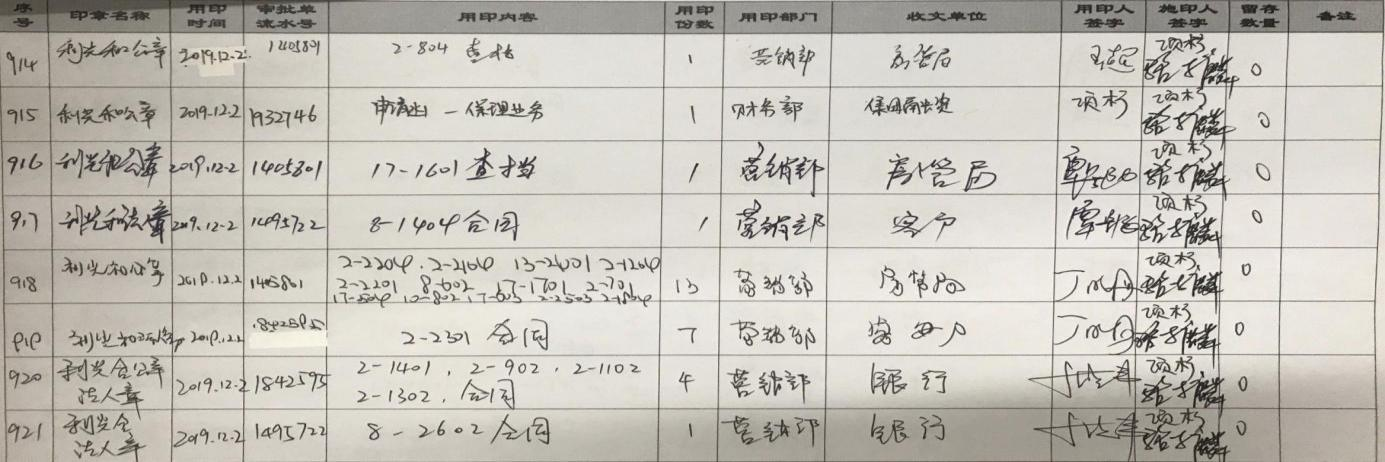 序号 印章名称 用印时间 审批单流水号 用印内容 用印份数 用印部门 收文单位 用印人签字 施印人签字 留存数量 备注
914 利兴和公章 2019.12.2 1405801 2-804 查档 1 营销部 房管局 项杉 0
915 利兴和公章 2019.12.2 1932746 申请书一保理业务 1 财务部 项杉 项杉 0
916 利兴和公章 2019.12.2 1405801 17-1601 查档 1 营销部 房管局 项杉 0
917 利兴和法人章 2019.12.2 1495722 8-1404 合同 1 营销部 客户 项杉 0
918 利兴和公章 2019.12.2 1405801 2-2204 . 2-2104 13-2601 2-1204
2-2201 8-602 17-1701 2-701
17-504 10-802 17-603 2-2503 2-1804 13 营销部 房管局 丁明丹 项杉 0
919 2019.12.2 2-2301 合同 7 营销部 丁明丹 项杉 0
920 利兴合公章 法人章 2019.12.2 1842595 2-1401 , 2-902 , 2-1102
2-1302 , 合同 4 营销部 银行 项杉 0
921 利兴合 法人章 2019.12.2 1495722 8-2602 合同 1 营销部 银行 项杉 0